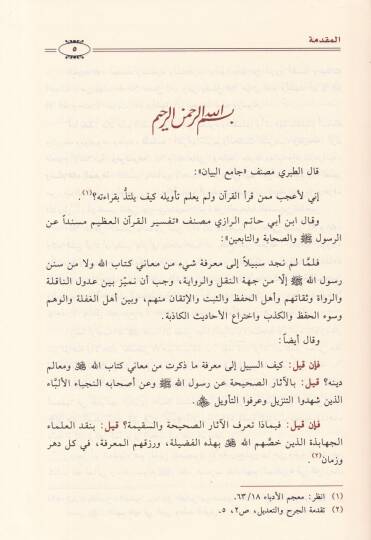 المقدمة
٥
بسم الله الرحمن الرحيم
قال الطبري مصنف «جامع البيان»:
إني لأعجب ممن قرأ القرآن ولم يعلم تأويله كيف يلتذُّ بقراءته؟(١).
وقال ابن أبي حاتم الرازي مصنف «تفسير القرآن العظيم مسنداً عن
الرسول ﷺ والصحابة والتابعين»:
فلمَّا لم نجد سبيلاً إلى معرفة شيء من معاني كتاب الله ولا من سنن
رسول الله ﷺ إلَّا من جهة النقل والرواية، وجب أن نميّز بين عدول الناقلة
والرواة وثقاتهم وأهل الحفظ والثبت والإتقان منهم، وبين أهل الغفلة والوهم
وسوء الحفظ والكذب واختراع الأحاديث الكاذبة.
وقال أيضاً:
فإن قيل: كيف السبيل إلى معرفة ما ذكرت من معاني كتاب الله ومعالم
دينه؟ قيل: بالآثار الصحيحة عن رسول الله ﷺ وعن أصحابه النجباء الألبَّاء
الذين شهدوا التنزيل وعرفوا التأويل
فإن قيل: فبماذا تعرف الآثار الصحيحة والسقيمة؟ قيل: بنقد العلماء
الجهابذة الذين خصَّهم الله بهذه الفضيلة، ورزقهم المعرفة، في كل دهر
وزمان(٢).
(١) انظر: معجم الأدباء ٦٣/١٨.
(٢) تقدمة الجرح والتعديل، ص٢، ٥.